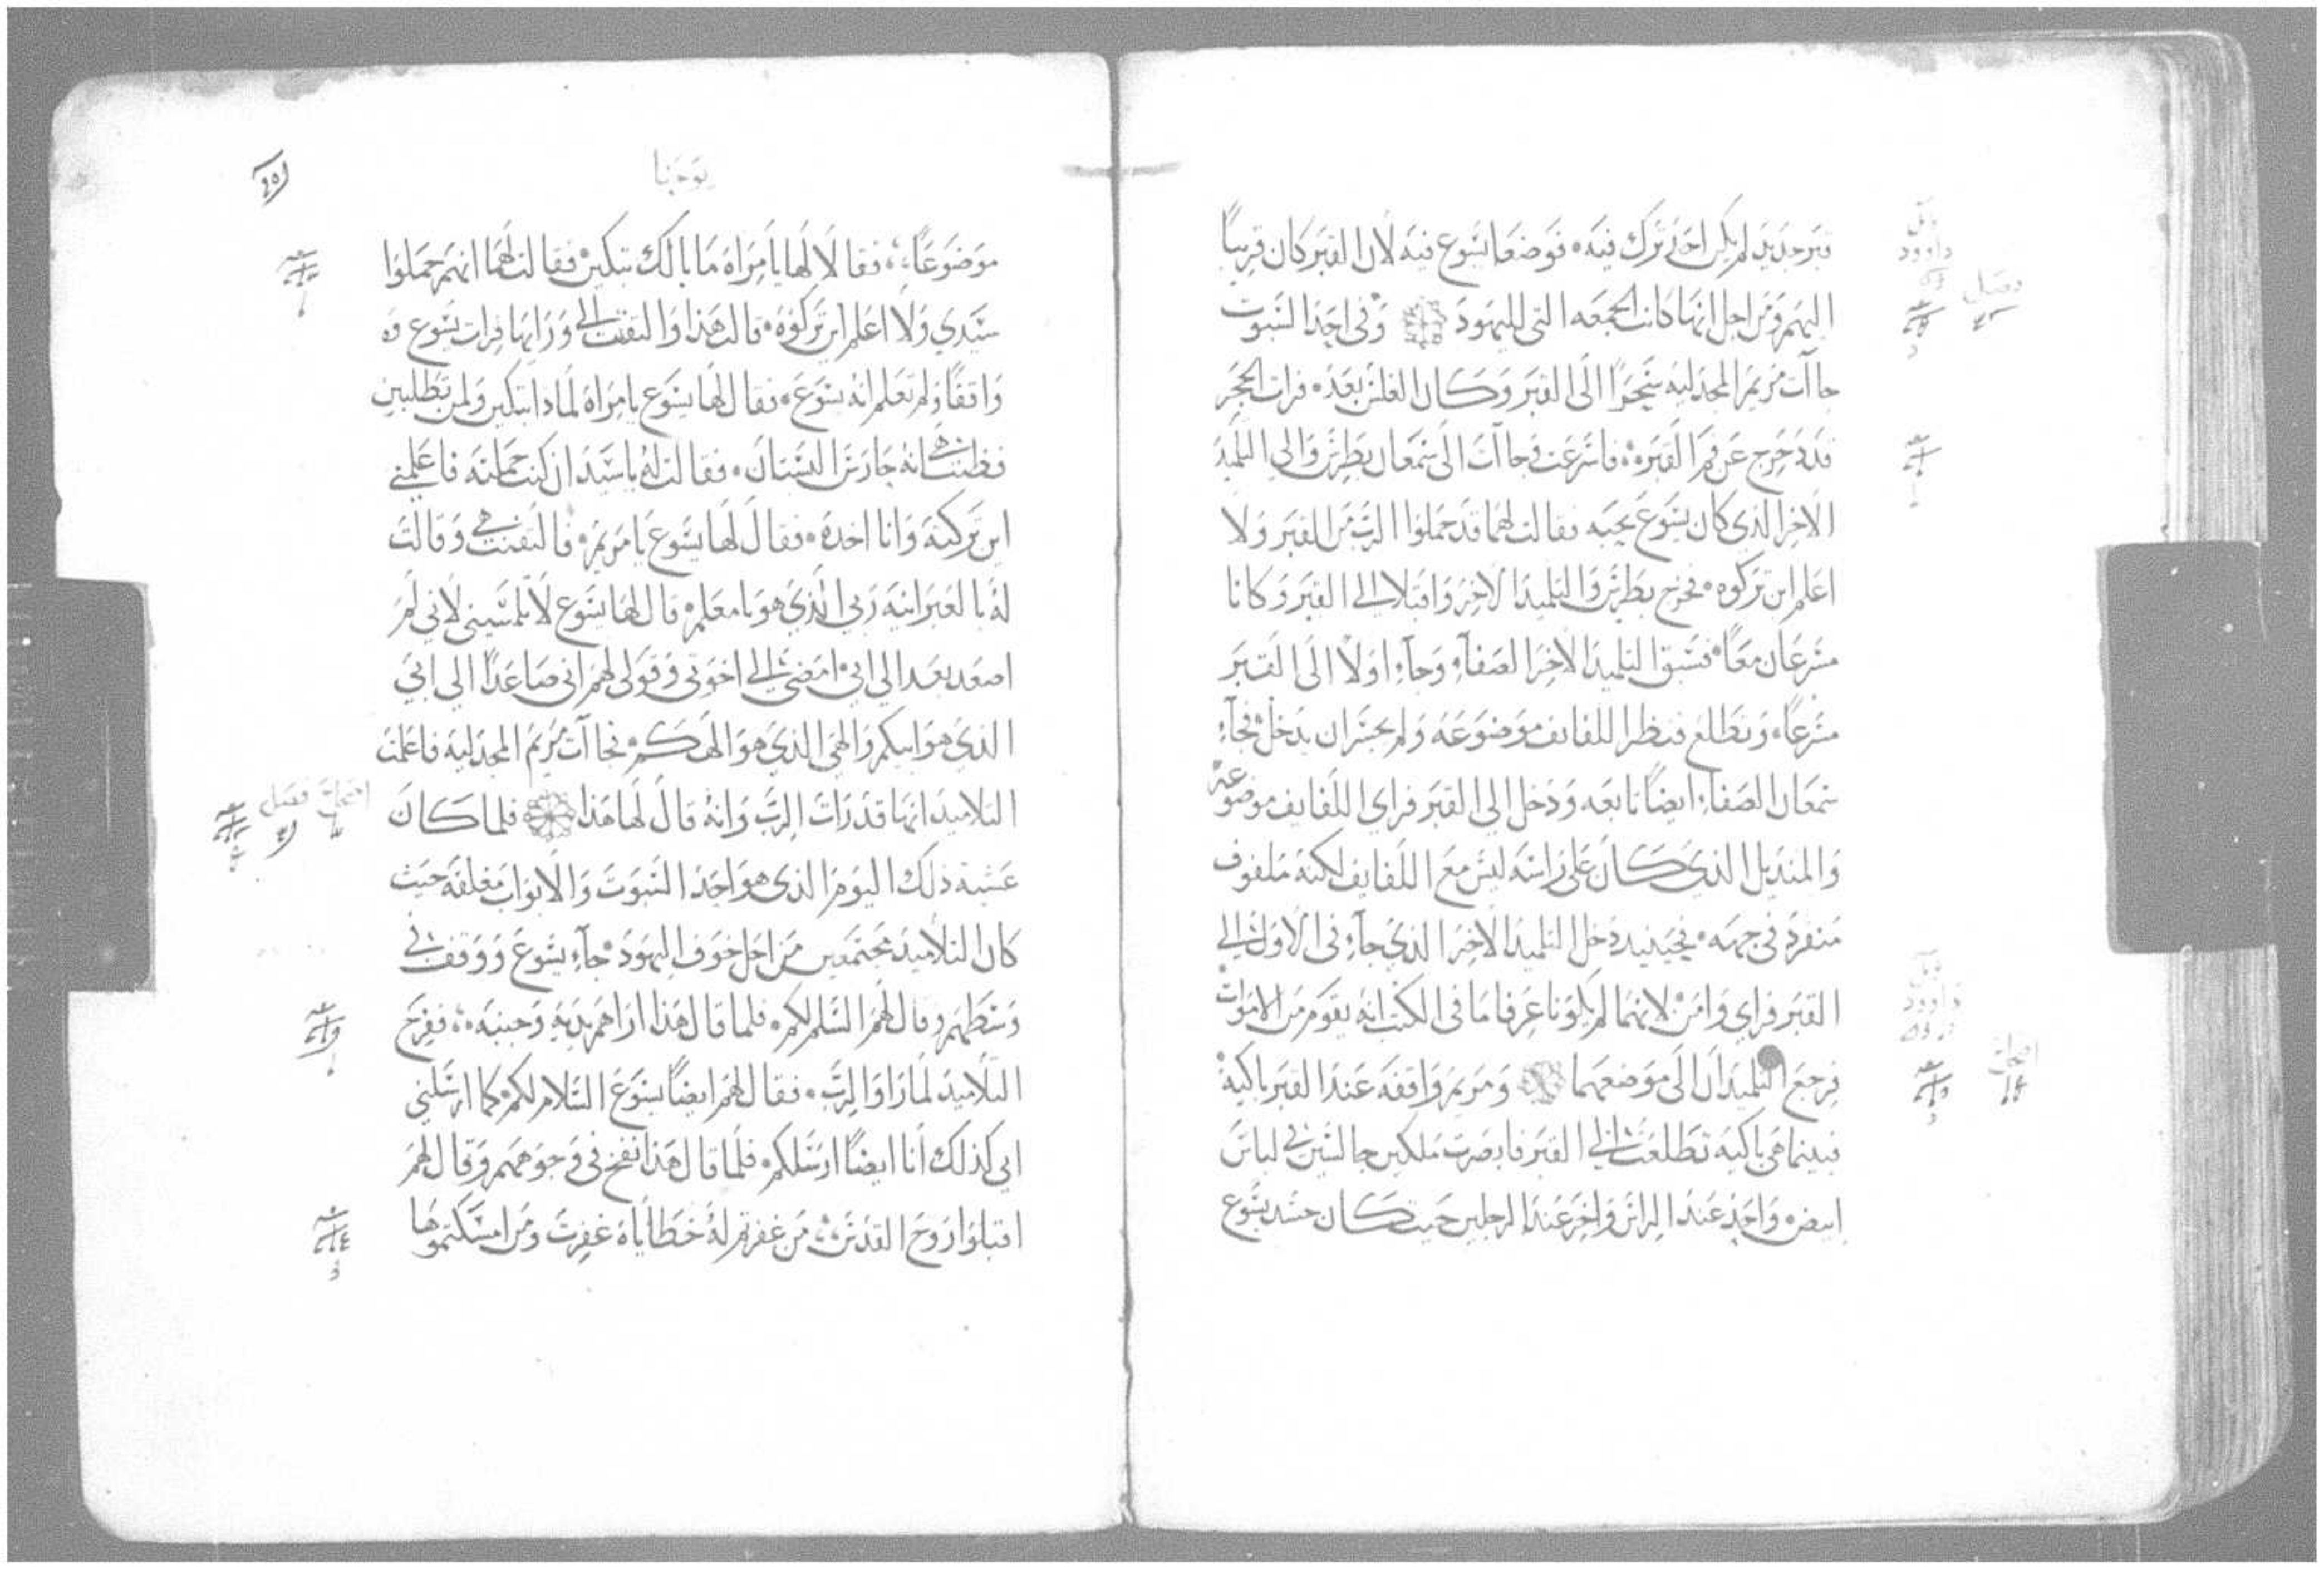 قبر جديد لم يكن احد ترك فيه ۰ فوضعا يسوع فيه لان القبر كان قريبا
اليهم ومن اجل انها كانت الجمعه التي لليهود وفي احد السبوت
جاات مريم المجدليه سحرا الى القبر وكان الغلس بعد ۰ فرات الحجر
قد دحرج عن فم القبر ۰ فاسرعت وجاات الى سمعان بطرس والى التلميذ
الاخر الذي كان يسوع يحبه فقالت لهما قد حملوا الرب من القبر ولا
اعلم اين تركوه ۰ فخرج بطرس والتلميذ الاخر واقبلا الي القبر وكانا
مسرعان معا ۰ فسبق التلميذ الاخر الصفاء وجاء اولا الى القبر
مسرعا ۰ وتطلع فنظر اللفايف موضوعه ولم يجسر ان يدخل فجاء
سمعان الصفاء ايضا تابعه ودخل الي القبر فراي اللفايف موضوعه
والمنديل الذي كان على راسه ليس مع اللفايف لكنه ملفوف
منفرد في جهه ۰ فحينيد دخل التلميذ الاخر الذي جاء في الاول الي
القبر فراي وامن ۰ لانهما لم يكونا عرفا ما في الكتب انه يقوم من الاموات
فرجع التلميدان الى موضعهما ومريم واقفه عند القبر باكيه
فبينما هي باكيه تطلعت الي القبر فابصرت ملكين جالسين في لباس
ابيض ۰ واحد عند الراس واخر عند الرجلين حيث كان جسد يسوع
فصل
داوود
داوود
اصحاح
يوحنا
موضوعا ۰ فقالا لها يا امراه ما بالك تبكين ۰ فقالت لهما انهم حملوا
سيدي ولا اعلم اين تركوه ۰ قالت هذا والتفتت الي وراىها فرات يسوع
واقفا ولم تعلم انه يسوع ۰ فقال لها يسوع يا امراه لمادا تبكين ولمن تطلبين
فظنت هي انه حارس البستان ۰ فقالت له يا سيد ان كنت حملته فاعلمني
اين تركته وانا اخده ۰ فقال لها يسوع يا مريم ۰ فالتفتت هي وقالت
له بالعبرانيه ربي الذي هو يا معلم ۰ قال لها يسوع لا تلمسيني لاني لم
اصعد بعد الي ابي ۰ امضي الي اخوتي وقولي لهم اني صاعدا الي ابي
الذي هو ابيكم والهي الذي هو الهكم ۰ فجاات مريم المجدليه فاعلمت
التلاميد انها قد رات الرب وانه قال لها هذا فلما كان
عشية ذلك اليوم الذي هو احد السبوت والابواب مغلقه حيث
كان التلاميد مجتمعين من اجل خوف اليهود ۰ جاء يسوع ووقف في
وسطهم وقال لهم السلم لكم ۰ فلما قال هذا اراهم يديه وجنبه ۰ ففرح
التلاميد لما راوا الرب ۰ فقال لهم ايضا يسوع السلام لكم ۰ كما ارسلني
ابي كذلك انا ايضا ارسلكم ۰ فلما قال هذا نفخ في وجوههم وقال لهم
اقبلوا روح القدس ۰ من غفرتم له خطاياه غفرت ومن امسكتموها
اصحاح فصل